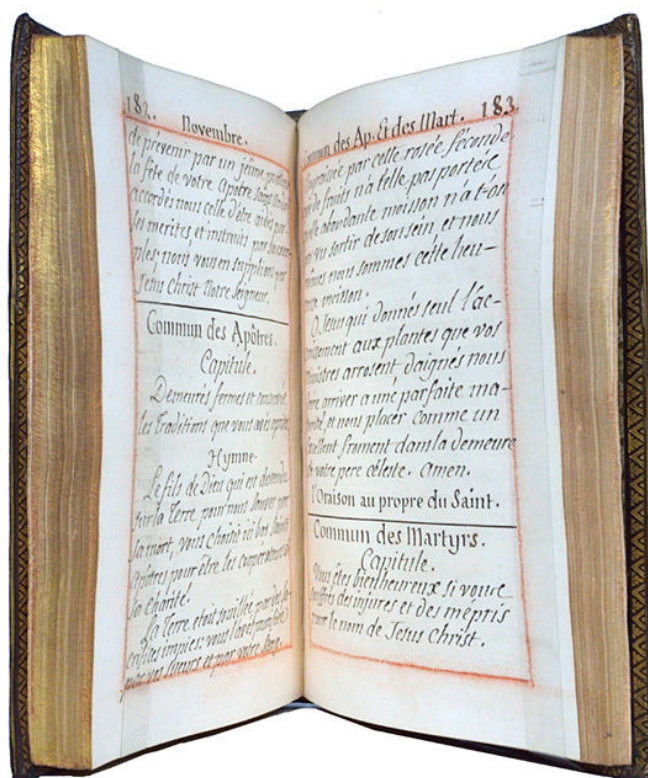 182.
Novembre.
de prévenir par un jeûne
la fête de votre Apotre Saint
accordés nous celle d'être aidés par
ses merites et instruits par ses exem-
ples; nous vous en supplions par
Jésus Christ Notre Seigneur.
Commun des Apôtres.
Capitule.
Demeurés fermes et conservés
les Traditions que vous avés
Hymne.
Le fils de Dieu qui est descendu
sur la Terre pour nous sauver par
sa mort, vous choisit ici bas Saints
Apôtres pour être les cooperateurs de
sa Charité.
La Terre etoit souillée par des sa-
crifices impies: vous
par vos sueurs et par votre Sang.
Commun des Ap. Et des Mart. 183.
Engraissée par cette rosée féconde
de fruits n'a t'elle pas portés
quelle abondante moisson n'a t-on
pas vu sortir de son sein, et nous
mêmes nous sommes cette heu-
reuse moisson.
O Jesus qui donnés seul l'ac-
croissement aux plantes que vos
ministres arrosent daignés nous
faire arriver a une parfaite ma-
turité, et nous placer comme un
excellent froment dans la demeure
de votre pere céleste. amen.
l'Oraison au propre du Saint.
Commun des Martyrs.
Capitule.
Vous êtes bienheureux si vous
souffrés des injures et des mépris
pour le nom de Jesus Christ.